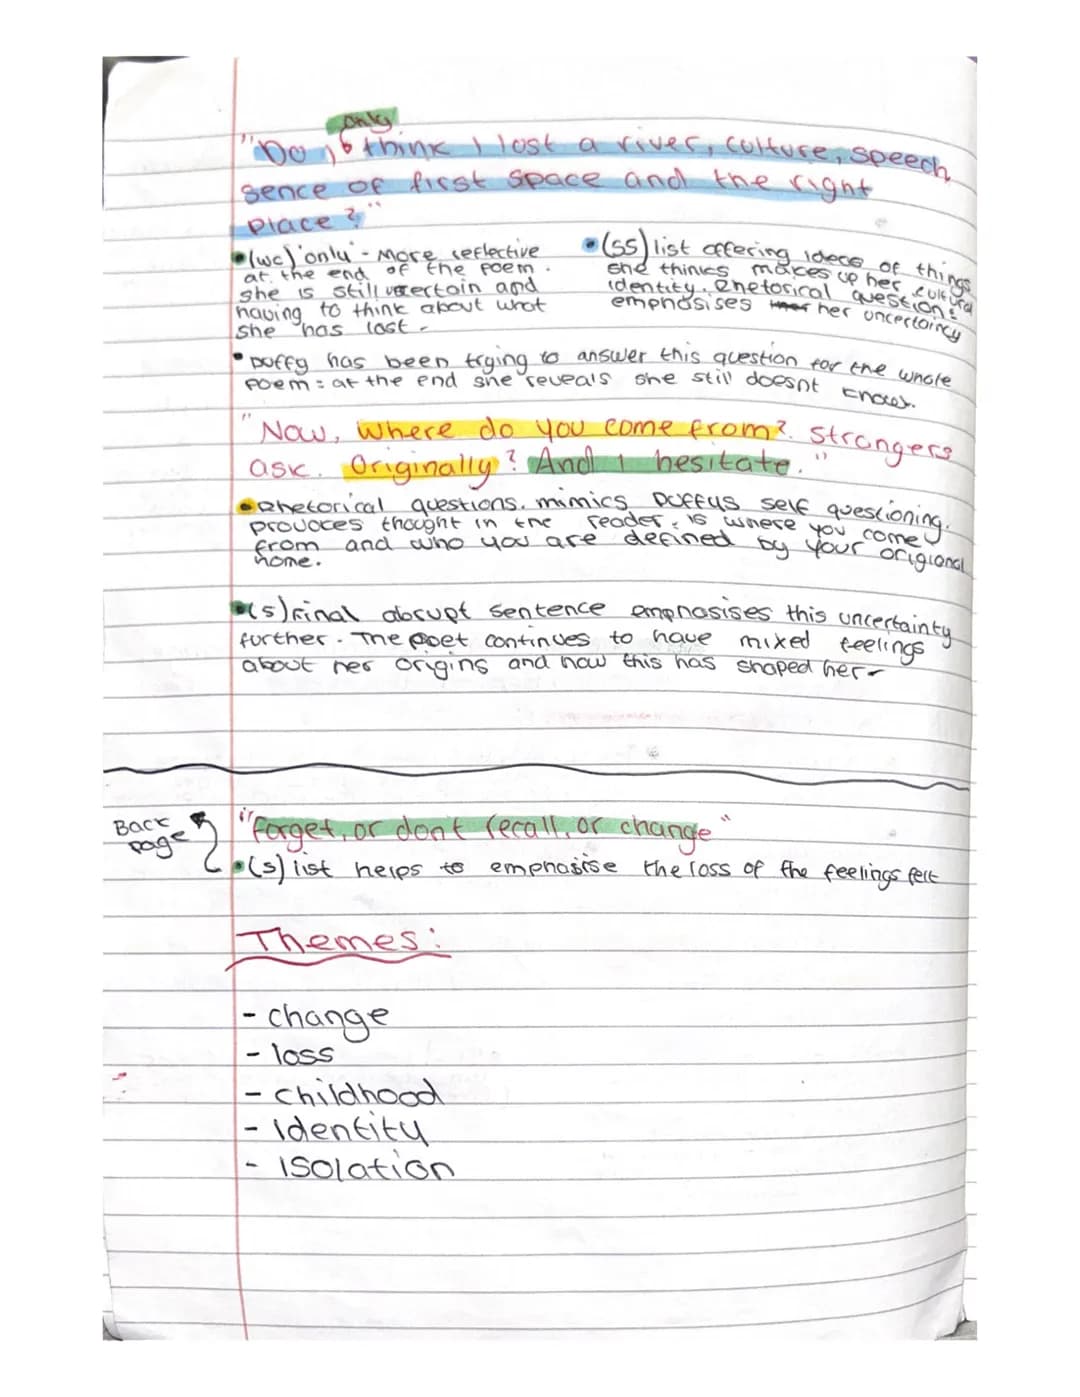 only
"Do I think I lost a river, culture, speech,
sence of first space and the right
place?"
•(wc) 'only' - More reflective
at the end of the poem.
she is still uncertain and
having to think about what
she has lost.
•(ss) list offering ideas of things
she thinks makes up her cultural
identity. Rhetorical question:
emphasises her uncertaincy
• Duffy has been trying to answer this question for the whole
poem: at the end she reveals she still doesnt knows.
"Now, where do you come from? strangers
ask. Originally? And I hesitate."
•Rhetorical questions. mimics Duffys self questioning.
provoces thought in the reader. is where you come
from and who you are defined by your origional
home.
•(s) Final abrupt sentence emphasises this uncertainty
further. The poet continues to have mixed feelings
about her origins and how this has shaped her.
Back
page
"forget, or don't recall, or change"
•(s) list helps to emphasise the loss of the feelings felt
Themes:
- change
- loss
- childhood
- Identity
- Isolation